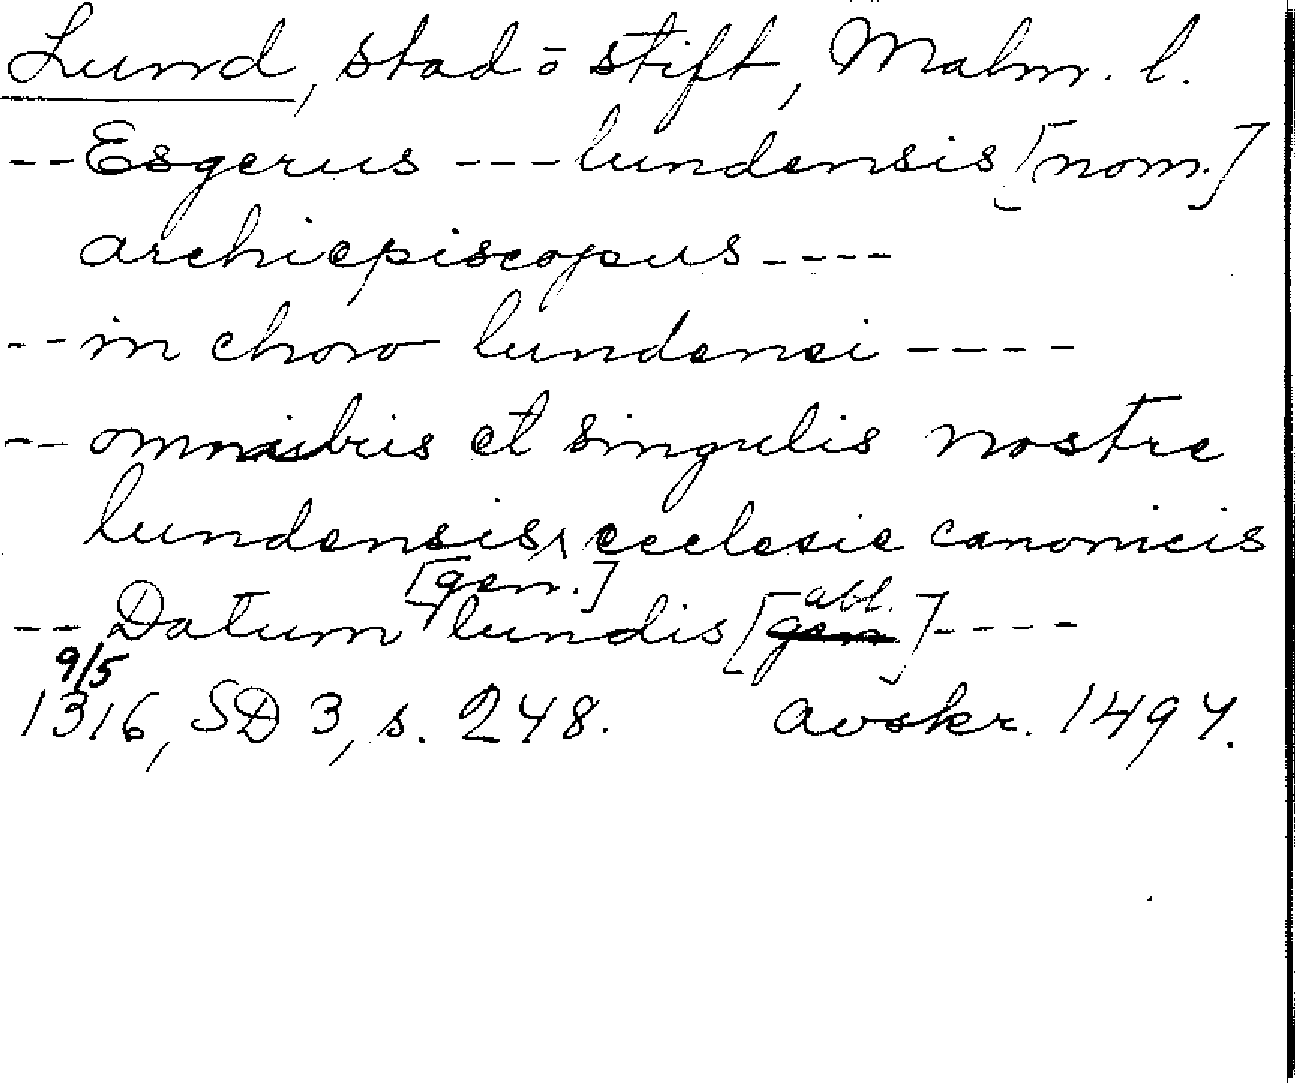 Lund, stad o stift, Malm. l.
-- Esgerus --- lundensis [nom.]
archiepiscopus ----
-- in choro lundensi ----
-- omnibus et singulis nostre
lundensis ecclesie canonicis
[gen.]
-- Datum lundis [abl.] ----
9/5
1316, SD 3, s. 248. avskr. 1494.